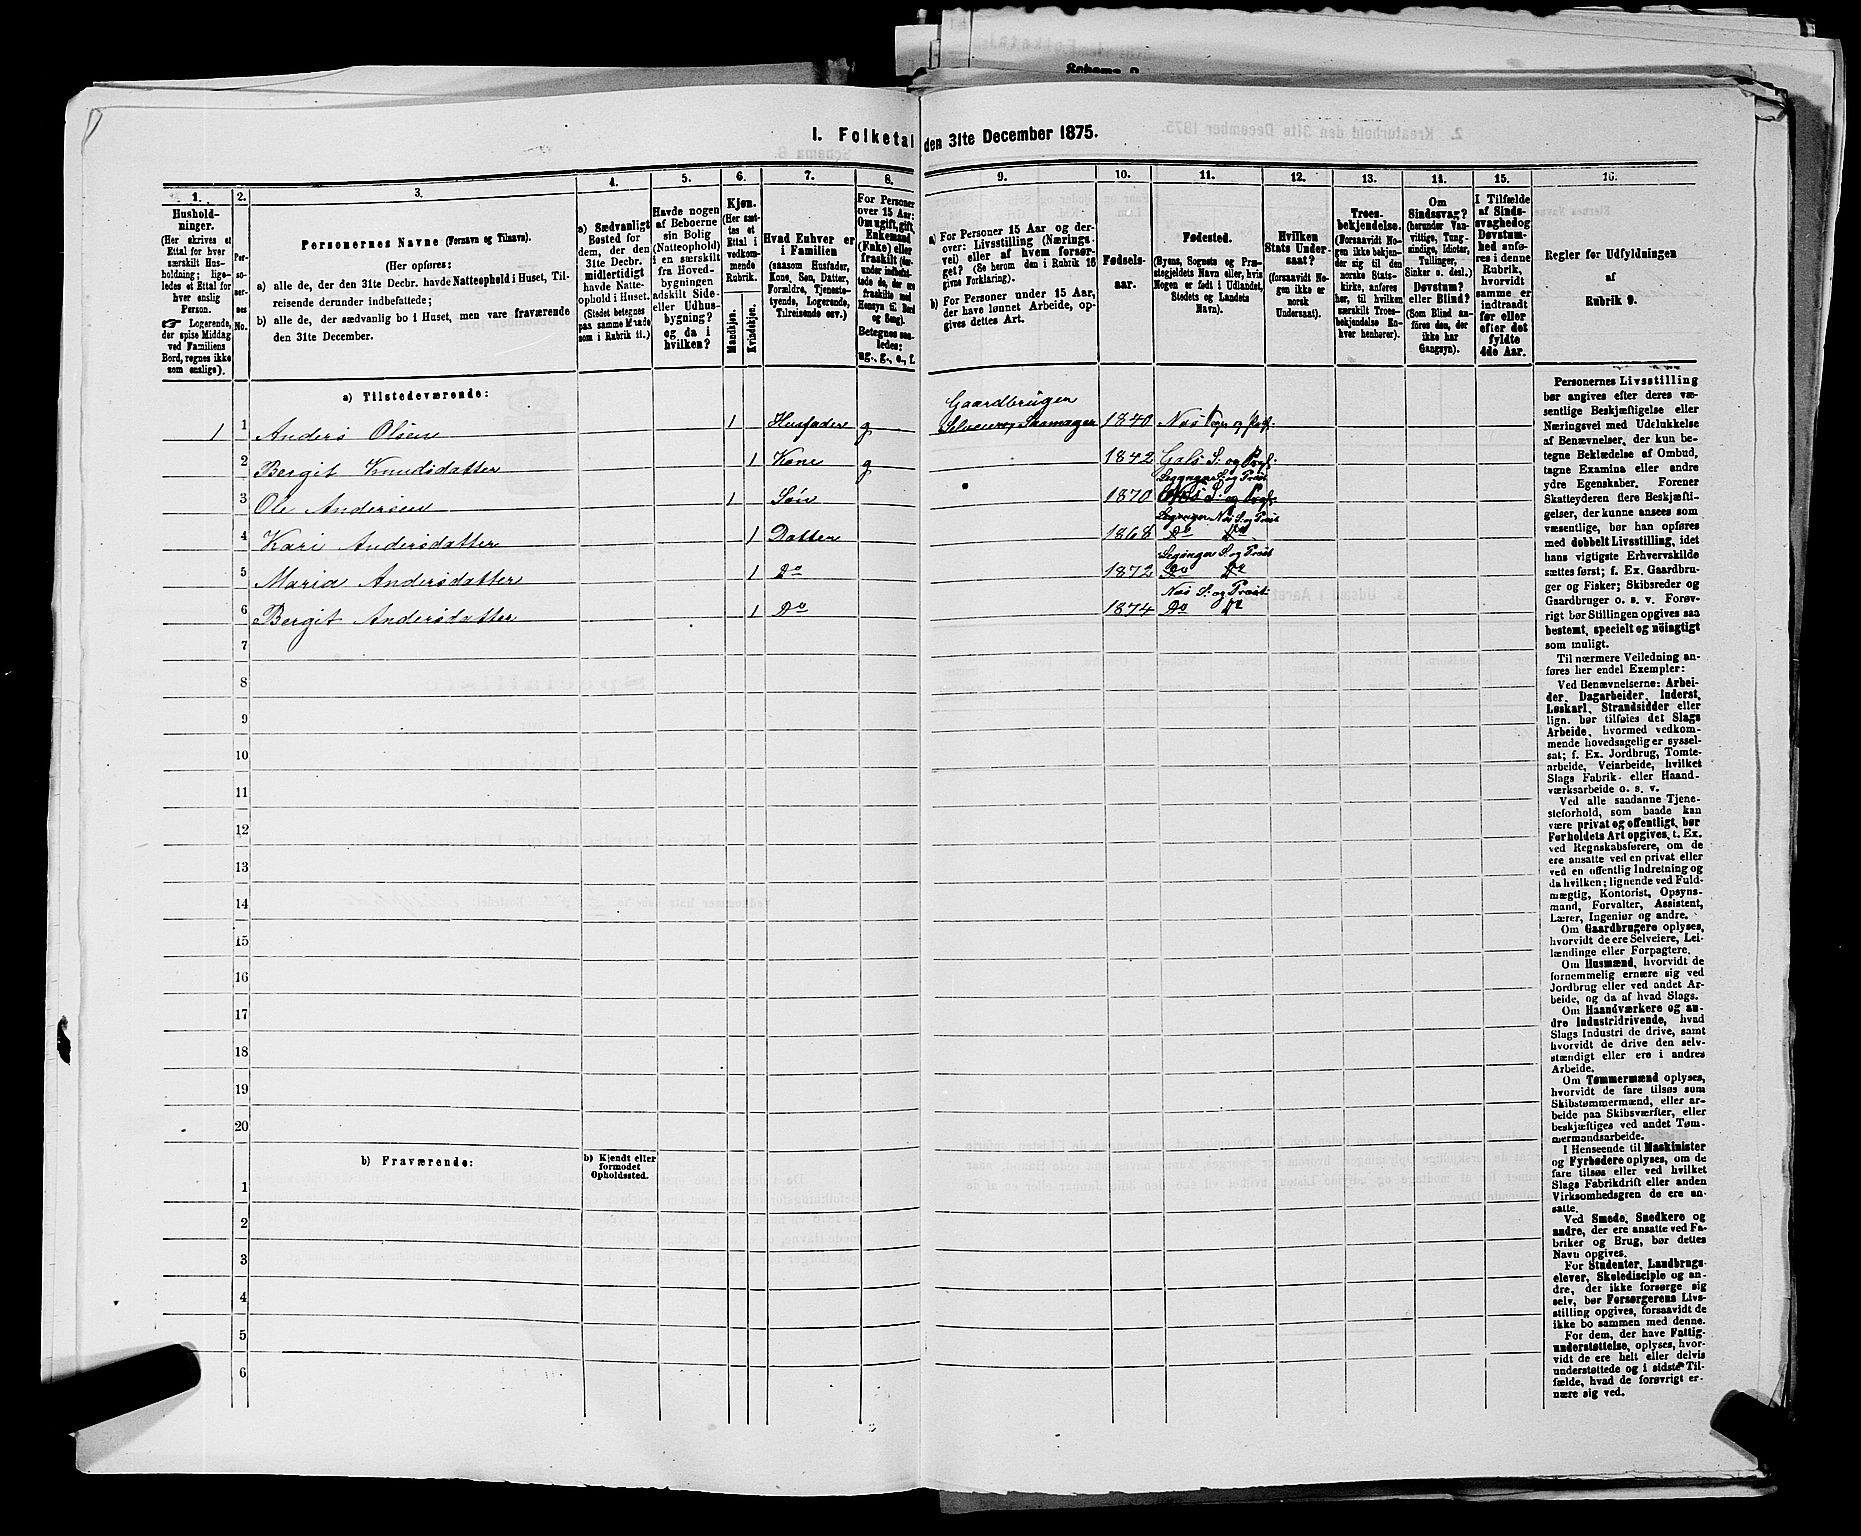 Schema 2
1. Folketal den 31te December 1875.
1. 2. 3. 4. 5. 6. 7. 8. 9. 10. 11. 12. 13. 14. 15. 16.
Hushold-
ninger.
(Her skrives et
Ettal for hver
særskilt Hus-
holdning; lige-
ledes et Ettal for
hver enslig
Person.
☞ Logerende,
der spise Middag
ved Familiens
Bord, regnes ikke
som enslige).
Per-
so-
ner-
nes
No.
Personernes Navne (Fornavn og Tilnavn).
(Her opføres:
a) alle de, der den 31te Decbr. havde Natteophold i Huset, Til-
reisende derunder indbefattede;
b) alle de, der sædvanlig bo i Huset, men vare fraværende
den 31te December.
a) Sædvanligt
Bosted for
dem, der den
31te Decbr.
midlertidigt
havde Natte-
ophold i Huset.
(Stedet betegnes
paa samme Maade
som i Rubrik 11.)
Havde nogen
af Beboerne
sin Bolig
(Natteophold)
i en særskilt
fra Hoved-
bygningen
adskilt Side-
eller Udhus-
bygning?
og da i
hvilken?
Kjøn.
(Her sæt-
tes et
Ettal i
vedkom-
mende
Rubrik.
Mandkjøn.
Kvindekjøn.
Hvad Enhver er
i Familien
(saasom Husfader,
Kone, Søn, Datter,
Forældre, Tjeneste-
tyende, Logerende,
Tilreisende osv.)
For Personer
over 15 Aar:
Om ugift, gift,
Enkemand
(Enke) eller
fraskilt (der-
under indbefat-
tede de, der ere
fraskilte med
Hensyn til Bord
og Seng).
Betegnes saa-
ledes:
ug., g., e., f.
a) For Personer 15 Aar og der-
over: Livsstilling (Nærings-
vei) eller af hvem forsør-
get? (Se herom den i Rubrik 16
givne Forklaring).
b) For Personer under 15 Aar,
der have lønnet Arbeide, op-
gives dettes Art.
Fødsels-
aar.
Fødested.
(Byens, Sognets og Præ-
stegjeldets Navn eller, hvis
Nogen er født i Udlandet,
Stedets og Landets
Navn).
Hvilken
Stats Under-
saat?
(forsaavidt No-
gen ikke er
norsk
Undersaat).
Troes-
bekjendelse.
(Forsaavidt No-
gen ikke bekjen-
der sig til den
norske Stats-
kirke, anføres
her, til hvilken
særskilt Troes-
bekjendelse En-
hver henhører).
Om
Sindssvag?
(herunder Van-
vittige, Tung-
sindige, Idioter,
Tullinger,
Sinker o. desl.)
Døvstum?
eller Blind?
(Som Blind an-
føres den, der
ikke har
Gangsyn).
I Tilfælde
af Sinds-
svaghed og
Døvstum-
hed anfø-
res i denne
Rubrik,
hvorvidt
samme er
indtraadt
før eller
efter det
fyldte
4de Aar.
Regler for Udfyldningen
af
Rubrik 9.
a) Tilstedeværende:
Gaardbruger
1 1 Anders Olsen 1 Husfader g Selveier, Skomager 1840 Nos Sogn og Prst.
2 Bergit Knudsdatter 1 Kone g 1842 Gols S: og Prgj.
Leganger S. og Præst
3 Ole Andersen 1 Søn 1870 S: og Prgj.
Leganger Nos S. og Præst
4 Kari Andersdatter 1 Datter 1868 Do Do
Leganger S. og Præst
5 Maria Andersdatter 1 Do 1872 Do Do
Nos S: og Præst
6 Bergit Andersdatter 1 Do 1874 Do Do
7
8
9
10
11
12
13
14
15
16
17
18
19
20
b) Fraværende:
b) Kjendt eller
formodet
Opholdssted.
1
2
3
4
5
6
Personernes Livsstilling
bør angives efter deres væ-
sentlige Beskjæftigelse eller
Næringsvei med Udelukkelse
af Benævnelser, der kun be-
tegne Beklædelse af Ombud,
tagne Examina eller andre
ydre Egenskaber. Forener
Skatteyderen flere Beskjæfti-
gelser, der kunne ansees som
væsentlige, bør han opføres
med dobbelt Livsstilling, idet
hans vigtigste Erhvervskilde
sættes først; f. Ex. Gaardbru-
ger og Fisker; Skibsreder og
Gaardbruger o. s. v. Forøv-
rigt bør Stillingen opgives saa
bestemt, specielt og nöiagtigt
som muligt.
Til nærmere Veiledning an-
føres her endel Exempler:
Ved Benævnelserne: Arbei-
der, Dagarbeider, Inderst,
Løskarl, Strandsidder eller
lign. bør tilføies det Slags
Arbeide, hvormed vedkom-
mende hovedsagelig er syssel-
sat; f. Ex. Jordbrug, Tomte-
arbeide, Veiarbeide, hvilket
Slags Fabrik- eller Haand-
værksarbeide o. s. v.
Ved alle saadanne Tjene-
steforhold, som baade kan
være privat og offentligt, bør
Forholdets Art opgives, t. Ex.
ved Regnskabsførere, om de
ere ansatte ved en privat eller
ved en offentlig Indretning og
da hvilken; lignende ved Fuld-
mægtig, Kontorist, Opsyns-
mand, Forvalter, Assistent,
Lærer, Ingeniør og andre.
Om Gaardbrugere oplyses,
hvorvidt de ere Selveiere, Lei-
lændinge eller Forpagtere.
Om Husmænd, hvorvidt de
fornemmelig ernære sig ved
Jordbrug eller ved andet Ar-
beide, og da af hvad Slags.
Om Haandværkere og an-
dre Industridrivende, hvad
Slags Industri de drive, samt
hvorvidt de drive den selv-
stændigt eller ere i andres
Arbeide.
Om Tømmermænd oplyses,
hvorvidt de fare tilsøs som
Skibstømmermænd, eller ar-
beide paa Skibsværfter, eller
beskjæftiges ved andet Tøm-
mermandsarbeide.
I Henseende til Maskinister
og Fyrbødere oplyses, om de
fare tilsøs eller ved hvilket
Slags Fabrikdrift eller anden
Virksomhedsgren de ere an-
satte.
Ved Smede, Snedkere og
andre, der ere ansatte ved Fa-
briker og Brug, bør dettes
Navn opgives.
For Studenter, Landbrugs-
elever, Skoledisciple og an-
dre, der ikke forsørge sig
selv, bør Forsørgerens Livs-
stilling opgives, forsaavidt de
ikke bo sammen med denne.
For dem, der have Fattig-
understøttelse, oplyses, hvor-
vidt de ere helt eller delvis
understøttede og i sidste Til-
fælde, hvad de forøvrigt er-
nære sig ved.